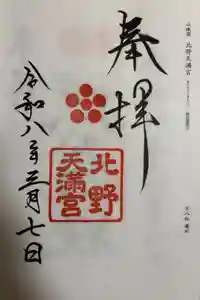 奉拝
北野
天満宮
令和八年三月七日
北野天満宮